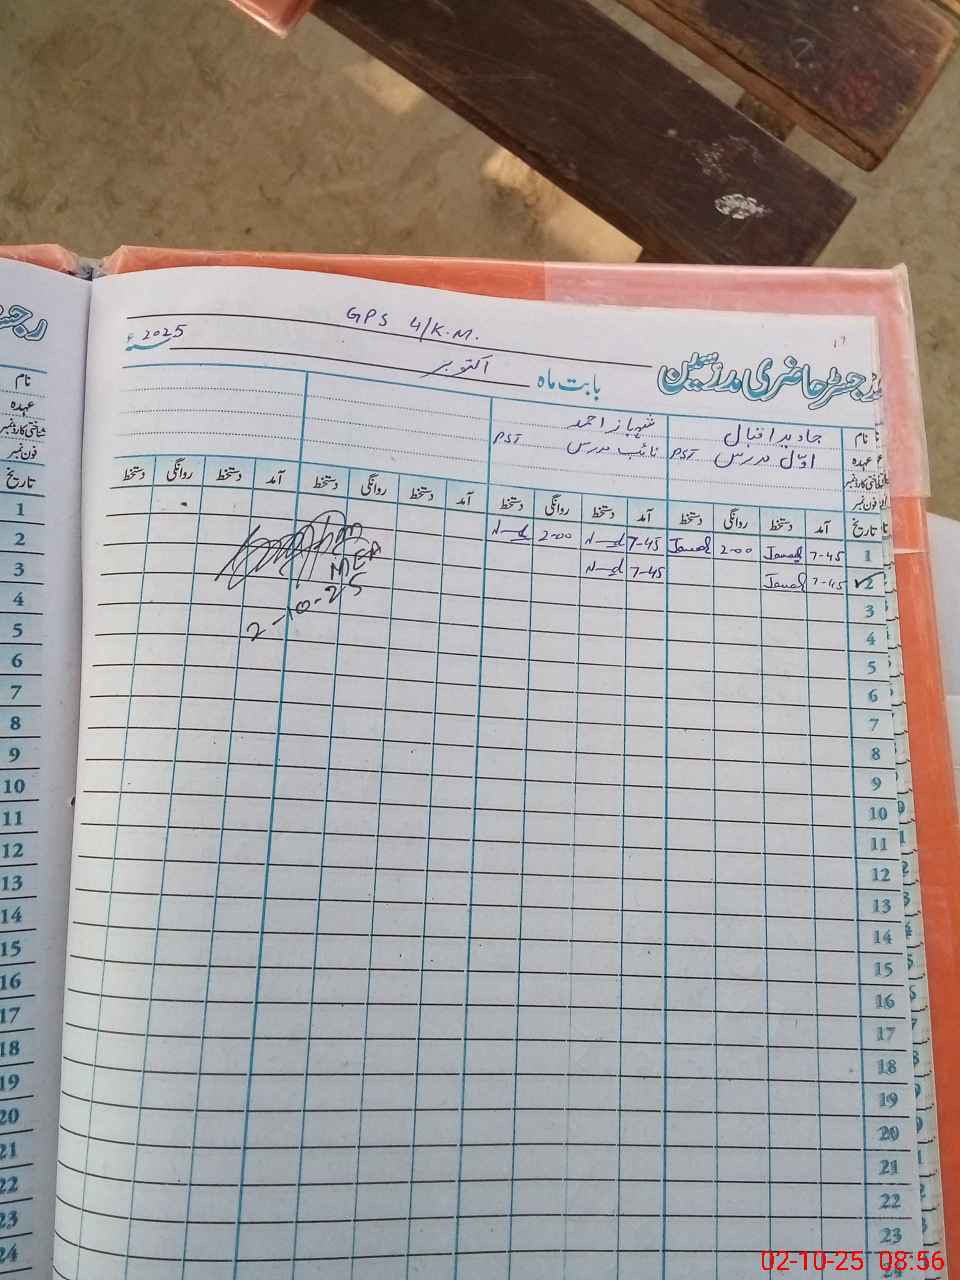 GPS 4/K.M.
۱۷
رجسٹر حاضری مدرسین بابت ماہ اکتوبر 2025ء
نام جاوید اقبال شہباز احمد
عہدہ اوّل مدرس PST نائب مدرس PST
شناختی کارڈ نمبر
فون نمبر
تاریخ آمد دستخط روانگی دستخط آمد دستخط روانگی دستخط آمد دستخط روانگی دستخط آمد دستخط روانگی دستخط
1 7-45 Javed 2-00 Javed 7-45 2-00
2 7-45 Javed 7-45
3
4
5
6
7
8
9
10
11
12
13
14
15
16
17
18
19
20
21
22
23
24
MEA
2-10-25
نام
عہدہ
شناختی کارڈ نمبر
فون نمبر
تاریخ
1
2
3
4
5
6
7
8
9
10
11
12
13
14
15
16
17
18
19
20
21
22
23
24
02-10-25 08:56